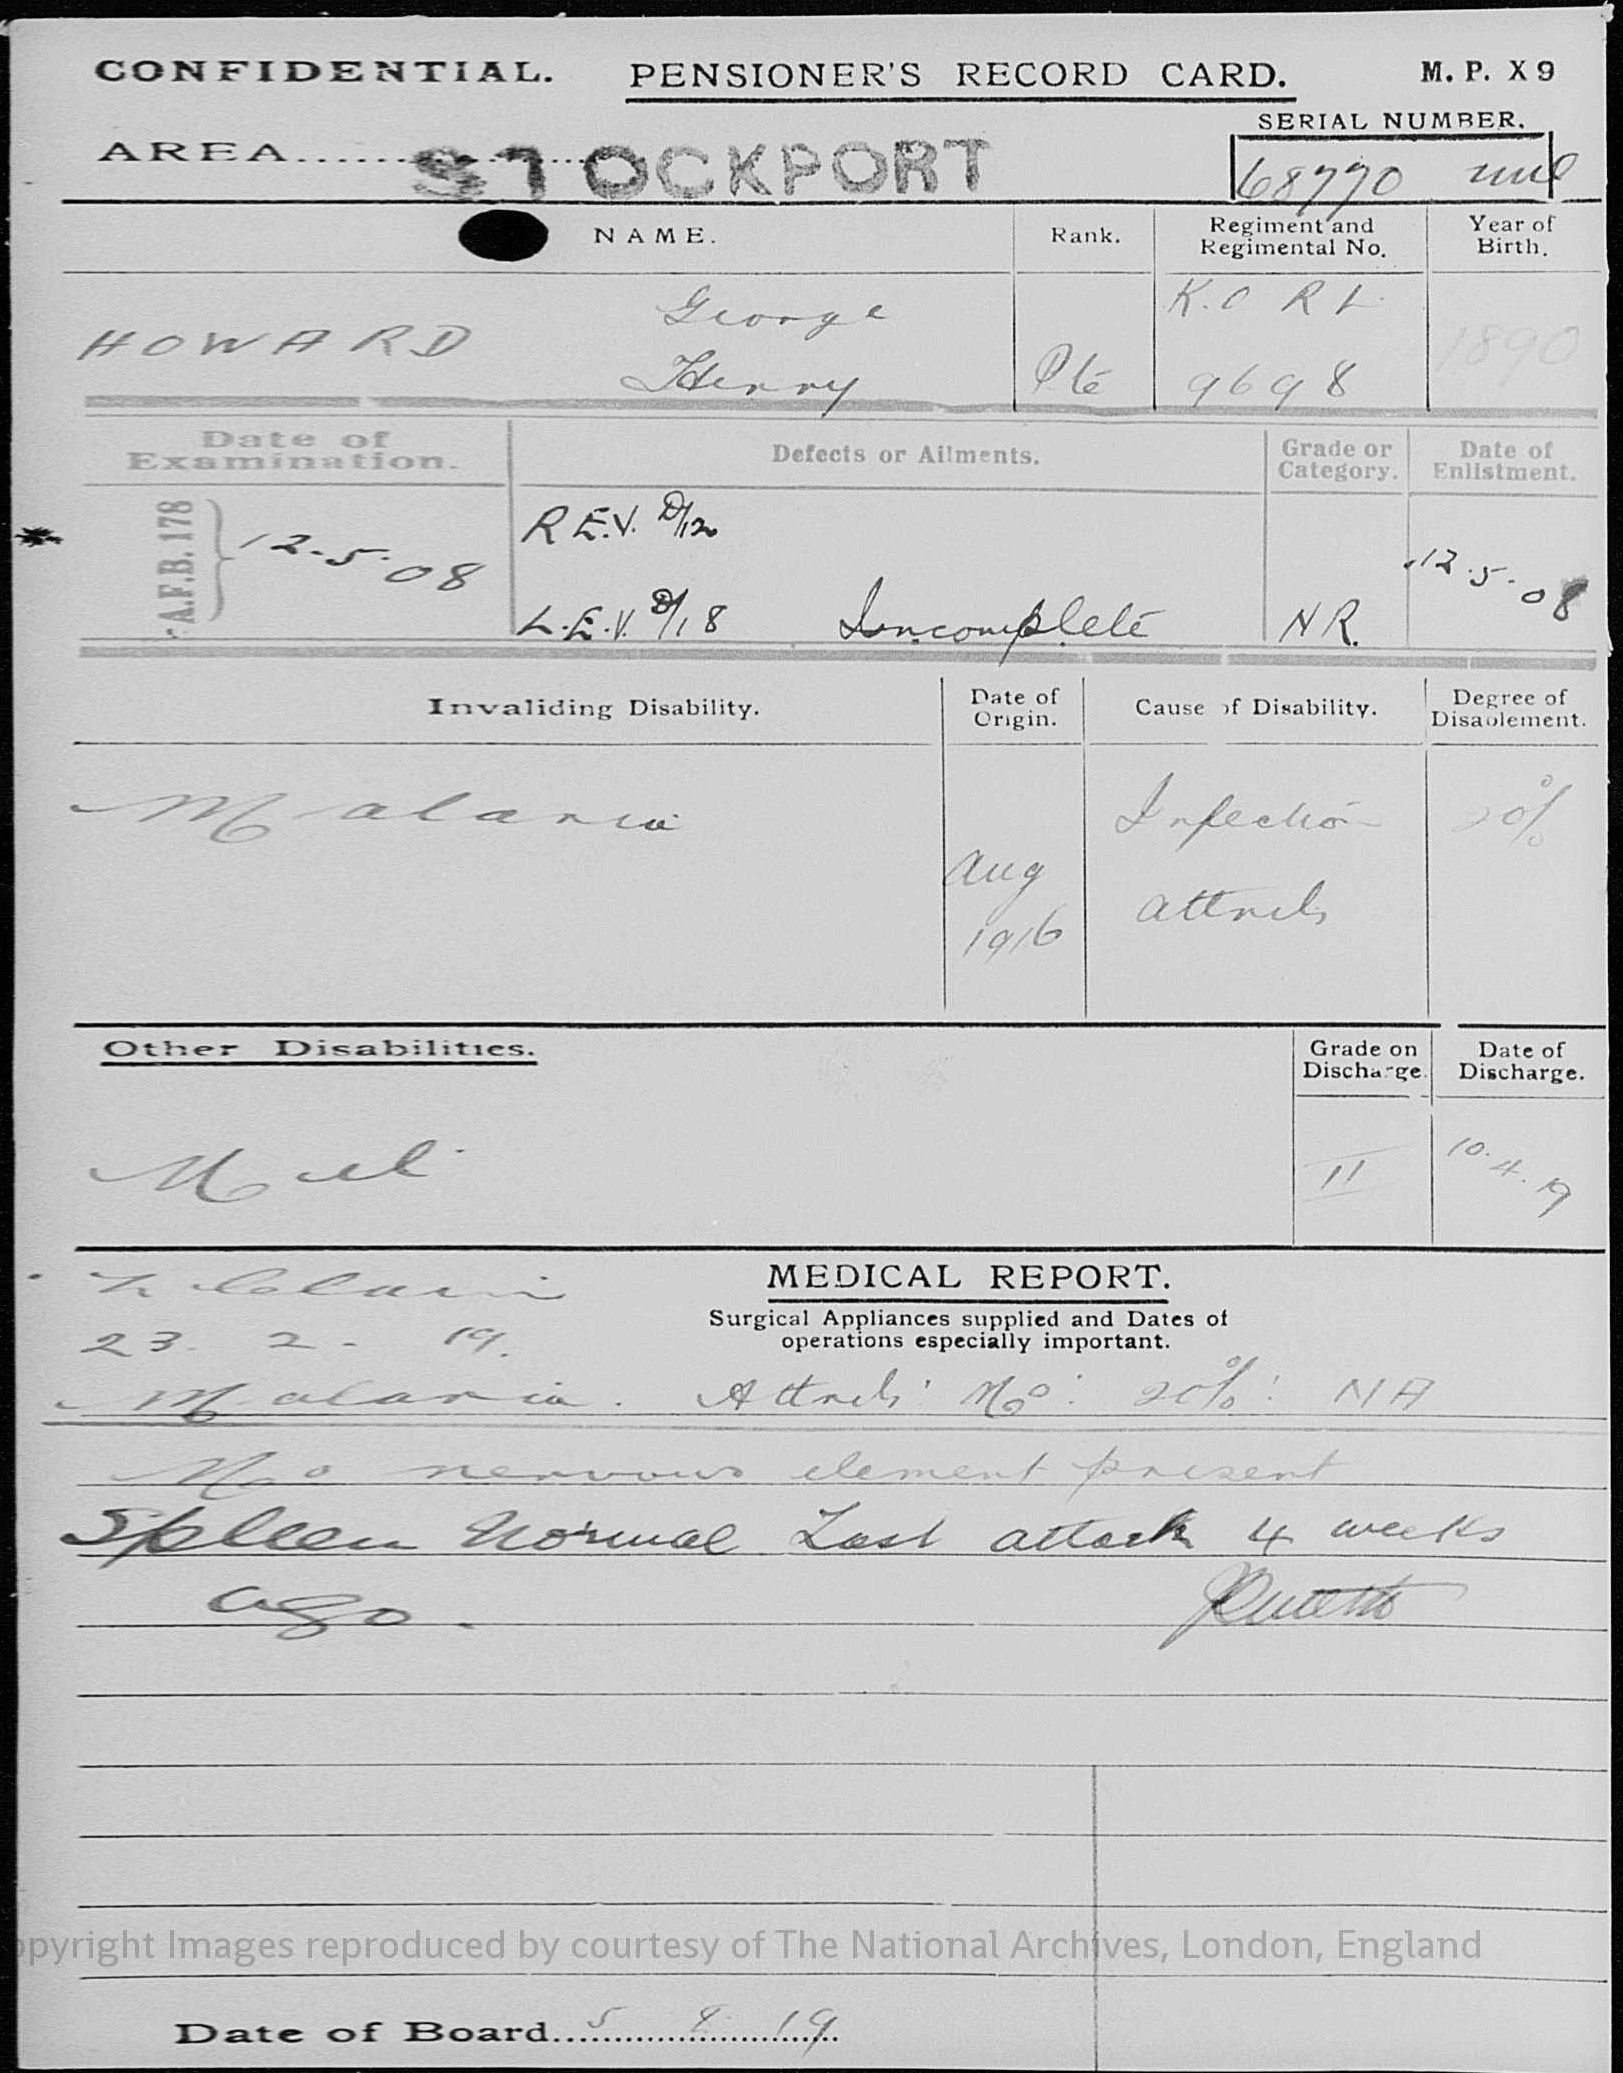 CONFIDENTIAL. PENSIONER'S RECORD CARD. M. P. X 9
SERIAL NUMBER.
AREA.................. STOCKPORT 68770
NAME. Rank. Regiment and Regimental No. Year of Birth.
HOWARD George Henry Pte K.O R L. 9698 1890
Date of Examination. Defects or Ailments. Grade or Category. Date of Enlistment.
A.F.B. 178 12-5-08 R E.V. D/12 12.5.08
L.E.V. D/18 Incomplete NR.
Invaliding Disability. Date of Origin. Cause of Disability. Degree of Disablement.
Malaria Aug 1916 Infection attrib 20%
Other Disabilities. Grade on Discharge. Date of Discharge.
Nil II 10.4.19
MEDICAL REPORT.
Surgical Appliances supplied and Dates of
operations especially important.
23. 2. 19.
Malaria. Attrib: No: 20%: NA
No nervous element present
Spleen Normal Last attack 4 weeks
ago.
opyright Images reproduced by courtesy of The National Archives, London, England
Date of Board 5 8 19